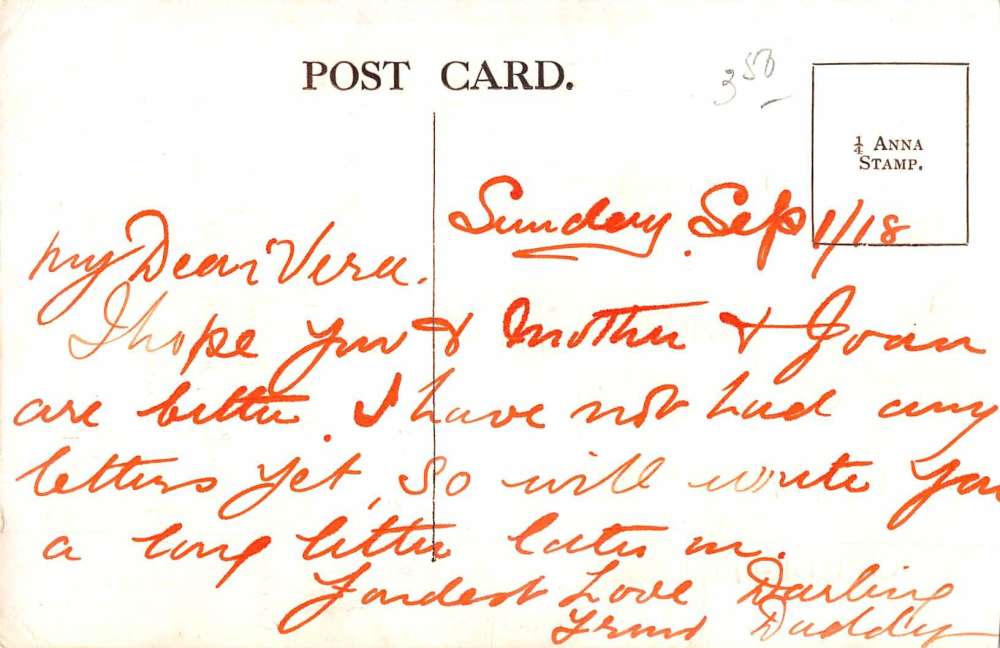 POST CARD.
3 50
¼ ANNA
STAMP.
Sunday. Sep 1/18
My Dear Vera.
I hope you & Mother & Joan
are better. I have not had any
letters yet, so will write you
a long letter later on.
Fondest Love Darling
From Daddy